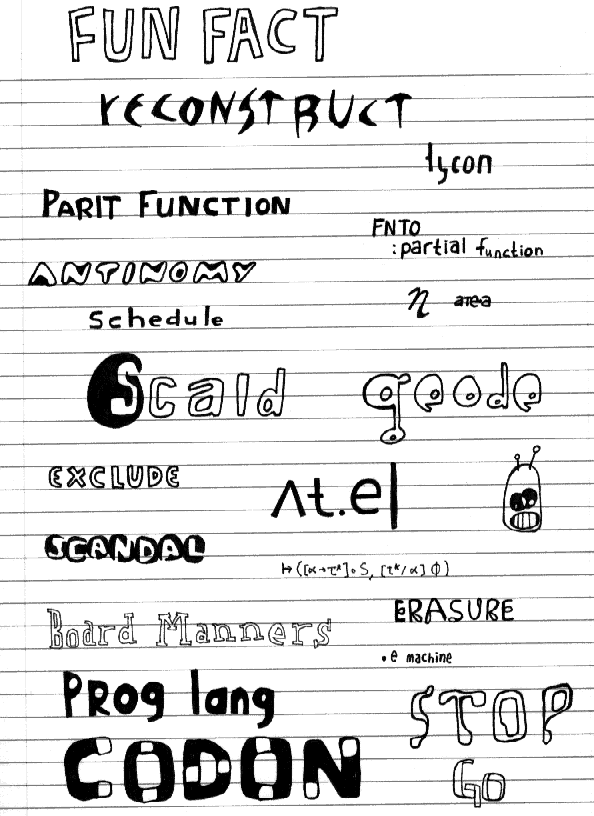 FUN FACT
rECONSTRUCT
tycon
PARIT FUNCTION
FNTO
:partial function
ANTINOMY
η area
Schedule
Scald
geode
EXCLUDE
Λt.e|
SCANDAL
↦([α→τ*]∘S, [τ*/α] Φ)
Board Manners
ERASURE
• e machine
PRog lang
STOP
CODON
Go